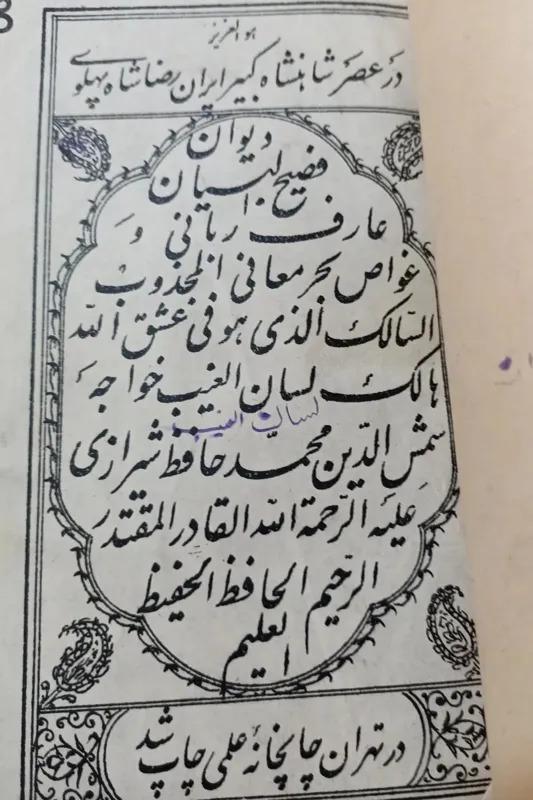 هوالعزیز
در عصر شاهنشاه کبیر ایران رضا شاه پهلوی
دیوان
فصیح البیان
عارف ربانی و
غواص بحر معانی المجذوب
السّالک الّذی هو فی عشق الله
هالک لسان الغیب خواجهٔ
لسان الغیب
شمس الدّین محمّد حافظ شیرازی
علیه الرّحمة الله القادر المقتدر
الرّحیم الحافظ الحفیظ
العلیم
در تهران چاپخانهٔ علمی چاپ شد